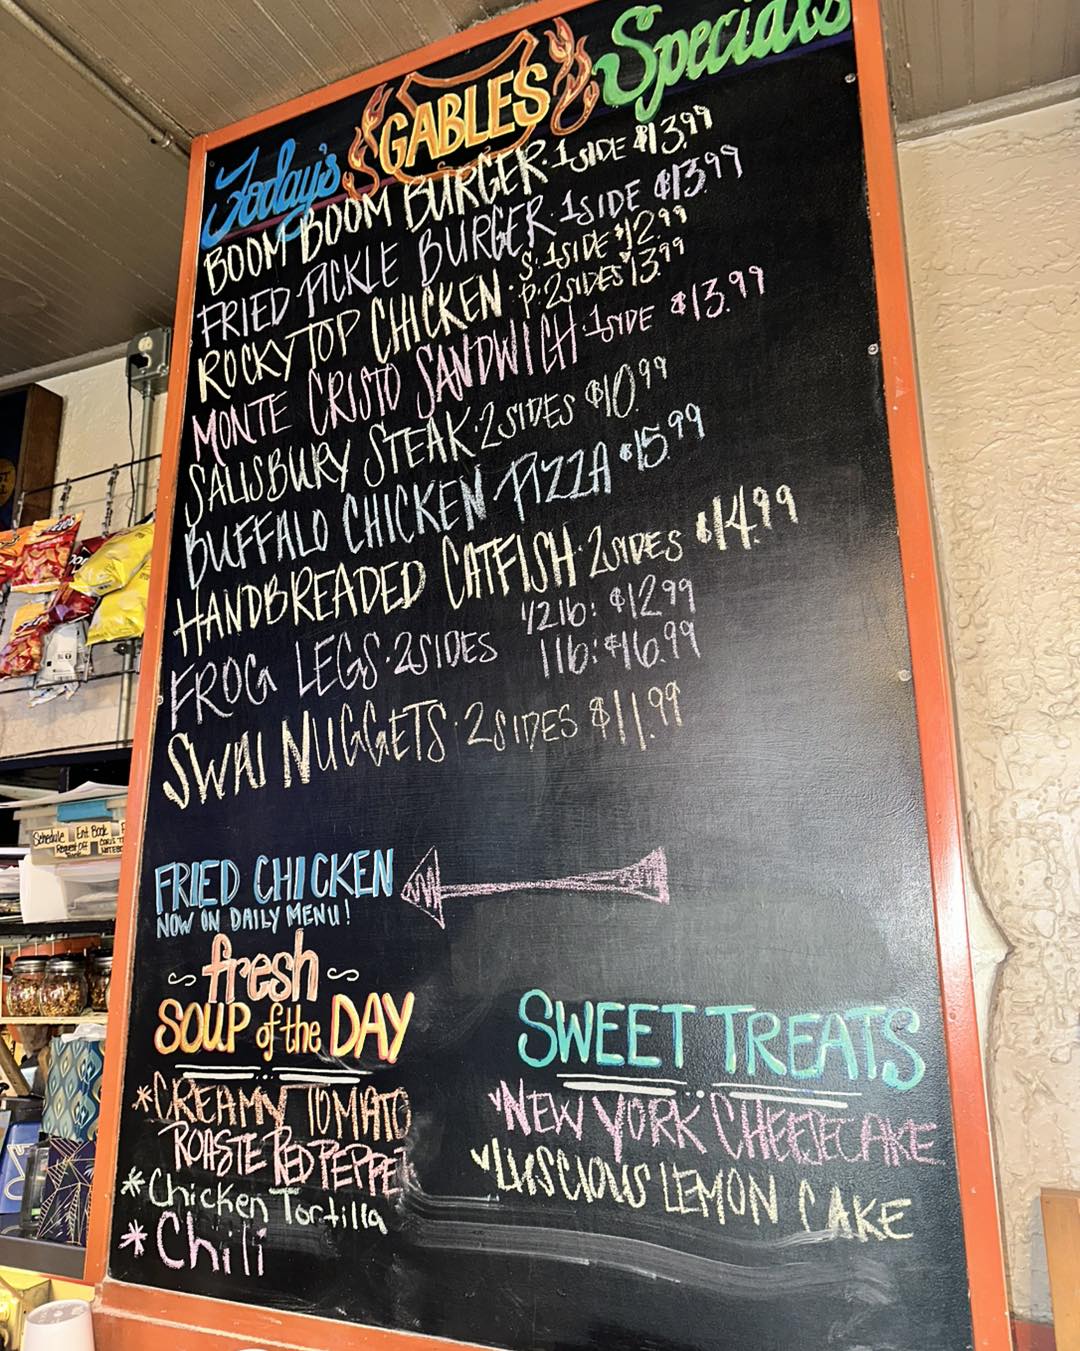 Today's GABLES Specials
BOOM BOOM BURGER · 1 SIDE $13.99
FRIED PICKLE BURGER · 1 SIDE $13.99
ROCKY TOP CHICKEN · S: 1 SIDE $12.99
P: 2 SIDES $13.99
MONTE CRISTO SANDWICH · 1 SIDE $13.99
SALISBURY STEAK · 2 SIDES $10.99
BUFFALO CHICKEN PIZZA · $15.99
HANDBREADED CATFISH · 2 SIDES $14.99
FROG LEGS · 2 SIDES 1/2 lb: $12.99
1 lb: $16.99
SWAI NUGGETS · 2 SIDES $11.99
FRIED CHICKEN
NOW ON DAILY MENU!
~ fresh ~
SOUP of the DAY
* CREAMY TOMATO
ROASTE RED PEPPER
* Chicken Tortilla
* Chili
SWEET TREATS
NEW YORK CHEESECAKE
LUSCIOUS LEMON CAKE
Schedule
Request Off
Ent Book